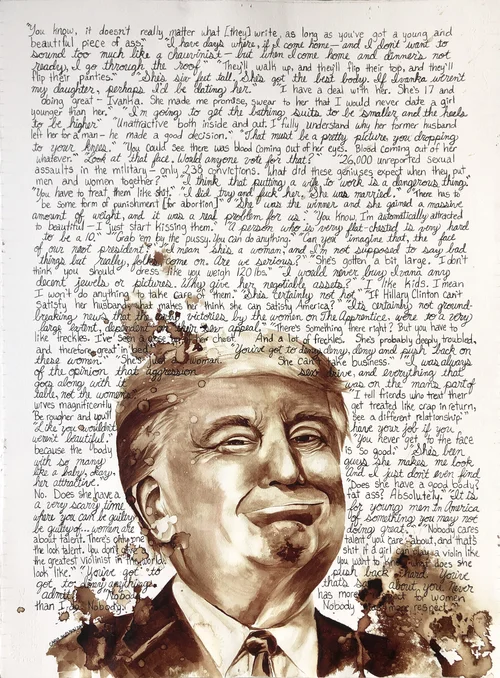 "You know, it doesn't really matter what [they] write, as long as you've got a young and
beautiful piece of ass." "I have days where, if I come home — and I don't want to
sound too much like a chauvinist — but when I come home and dinner's not
ready, I go through the roof." "They'll walk up, and they'll flip their top, and they'll
flip their panties." "She's six feet tall, She's got the best body. If Ivanka weren't
my daughter, perhaps I'd be dating her." "I have a deal with her. She's 17 and
doing great — Ivanka. She made me promise, swear to her that I would never date a girl
younger than her." "I'm going to get the bathing suits to be smaller and the heels
to be higher" "Unattractive both inside and out. I fully understand why her former husband
left her for a man — he made a good decision." "That must be a pretty picture, you dropping
to your knees." "You could see there was blood coming out of her eyes. Blood coming out of her
whatever." "Look at that face. Would anyone vote for that?" "26,000 unreported sexual
assaults in the military — only 238 convictions. What did these geniuses expect when they put
men and women together?" "I think that putting a wife to work is a dangerous thing."
"You have to treat them like shit." "I did try and fuck her. She was married." "There has to
be some form of punishment [for abortion]" "She was the winner and she gained a massive
amount of weight, and it was a real problem for us." "You know, I'm automatically attracted
to beautiful — I just start kissing them." "A person who is very flat-chested is very hard
to be a 10." "Grab 'em by the pussy. You can do anything." "Can you imagine that, the face
of our next president? I mean, she's a woman, and I'm not supposed to say bad
things but really, folks, come on. Are we serious?" "She's gotten a bit large. I don't
think you should dress like you weigh 120 lbs." "I would never buy Ivana any
decent jewels or pictures. Why give her negotiable assets?" "I like kids. I mean
I won't do anything to take care of them." "She's certainly not hot." "If Hillary Clinton can't
satisfy her husband what makes her think she can satisfy America?" "It's certainly not ground-
breaking news that the victories, by the women on The Apprentice were to a very
large extent, dependent sex appeal." "There's something there right? But you have to
like freckles. I've seen chest. And a lot of freckles. She's probably deeply troubled,
and therefore great in bed woman. You've got to deny, deny, deny and push back on
these women. She's She Can't make business." "I was always
of the opinion that aggression, sex drive and everything that
goes along with was on the man's part of
table, not the women's I tell friends who treat their
wives magnificently get treated like crap in return,
Be rougher and you'll see a different relationship"
"Like you wouldn't have your job if you
weren't beautiful." "You never get to the face
because the body is so good." "She's been
with so many guys she makes me look
like a baby, okay, and I just don't even find
her attractive. "Does she have a good body?
No. Does she have a fat ass? Absolutely." "It is
a very scary time for young men in America
where you can be guilty of something you may not
be guilty of... women are doing great." "Nobody cares
about talent. There's only one talent you care about, and that's
the look talent. You don't shit if a girl can play a violin like
the greatest violinist in the world. You want to know what does she
look like." "You've got to push back hard. You've
got to deny anything that's said about you. Never
admit." "Nobody has more respect for women
than I do. Nobody. Nobody has more respect."